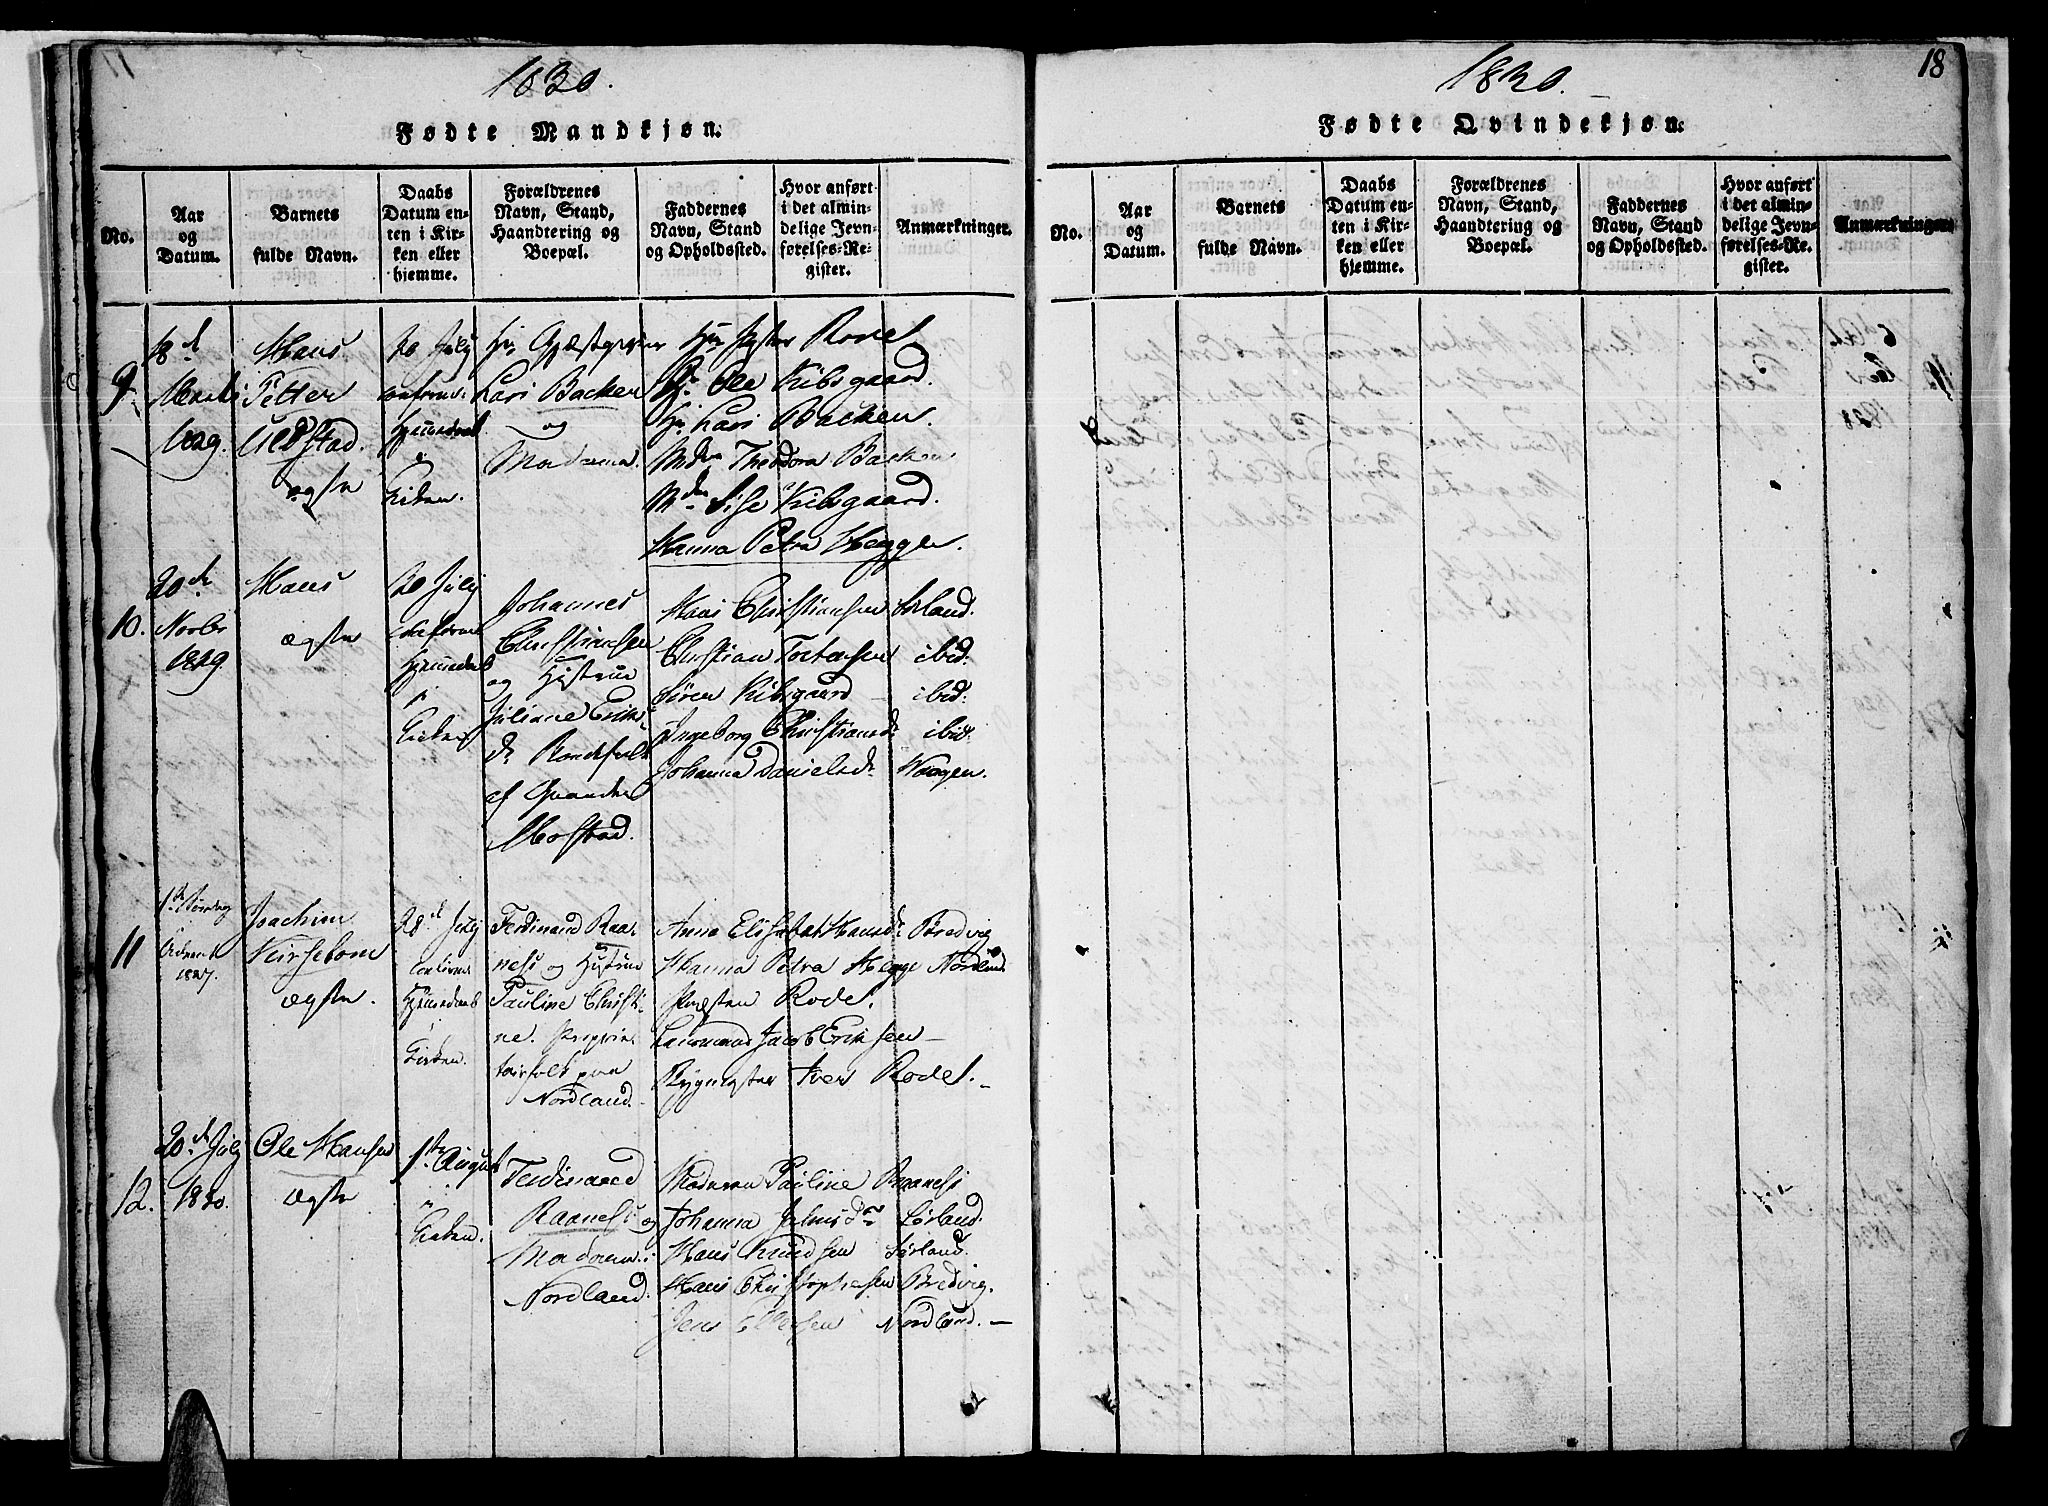 1830.
Fødte Mandkjøn.
No.
Aar
og
Datum.
Barnets
fulde Navn.
Daabs
Datum en-
ten i Kir-
ken eller
hjemme.
Forældrenes
Navn, Stand,
Haandtering og
Boepæl.
Faddernes
Navn, Stand
og Opholdssted.
Hvor anført
i det almin-
delige Jevn-
førelses-Re-
gister.
Anmærkninger.
9.
18d
1829.
Hans
Petter
Uldstad.
ægte
20 July
Hjemmedaab
i
Kirken.
Lars Backen
og
Madame.
Hr Rodel
Hr Ole Kibsgaard.
Hr Lars Backen
Mdm Theodora Backen
Mdm Sise Kibsgaard.
Hanna Petra Hegge.
10.
20de
Novbr
1829
Hans
ægte
20 July
Hjemmedaab
i
Kirken
Johannes
Christiansen
og Hustrue
Juliane Eriks-
dr
af
Mostad.
Hans Christiansen Sørland.
Christian Tostensen ibid:
Sören Kibsgaard — ibid:
Ingeborg Christiansd. ibid:
Johanna Danielsdr Waagen.
11
1ste Søndag
i Advent
1827.
Joachim
Kirsebom
ægte.
28d July
Hjemmedaab
i
Kirken.
Ferdinand Raa-
ness og Hustrue
Pauline Christi-
ne. Proprie-
tairfolk paa
Nordland.
Anne Elisabet Hansd. Bredvig
Hanna Petra Hegge Nordland
Præsten Rodel.
Lensmand Jacob Eriksen —
Iver Rodel. —
12.
20de July
1830.
Ole Hansen
ægte
1ste August
i
Kirken.
Ferdinand
Raaness og
Madame i
Nordland.
Madame Pauline Raaness
Johanna Sørland.
Hans Knudsen Sørland.
Hans Christophersen Bredvig.
Jens Nordland. —
1830.
18
Fødte Qvindekjøn.
No.
Aar
og
Datum.
Barnets
fulde Navn.
Daabs
Datum en-
ten i Kir-
ken eller
hjemme.
Forældrenes
Navn, Stand,
Haandtering og
Boepæl.
Faddernes
Navn, Stand
og Opholdssted.
Hvor anført
i det almin-
delige Jevn-
førelses-Re-
gister.
Anmærkninger.